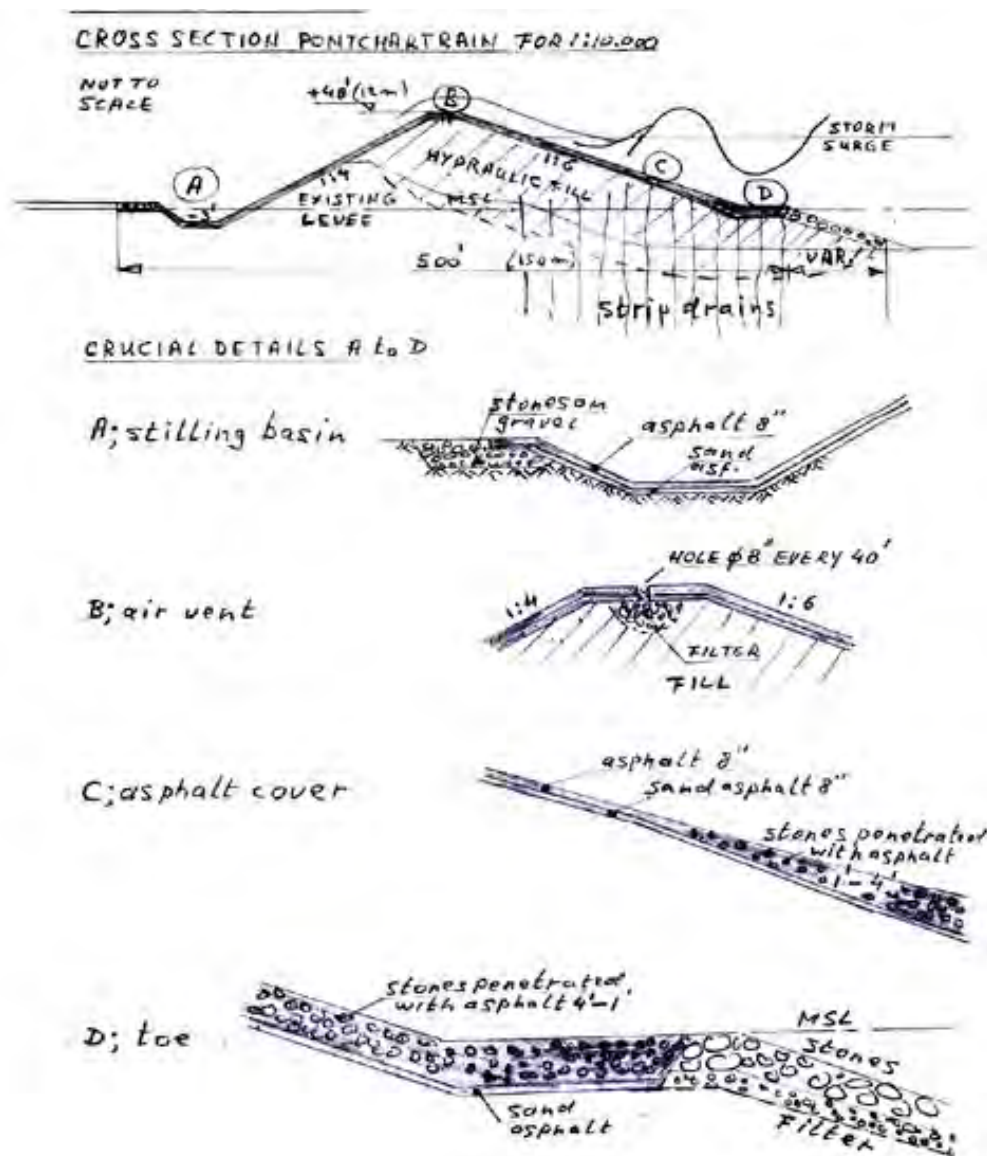 CROSS SECTION PONTCHARTRAIN FOR 1:10.000
NOT TO
SCALE
+40' (12m)
B
STORM
SURGE
A
-3'
1:4
EXISTING
LEVEE
HYDRAULIC FILL
1:6
MSL
C
D
500' (150m)
VAR.
strip drains
CRUCIAL DETAILS A to D
A; stilling basin
stones on
gravel
asphalt 8"
sand
asf.
B; air vent
HOLE φ8" EVERY 40'
1:4
1:6
FILTER
FILL
C; asphalt cover
asphalt 8"
sand asphalt 8"
stones penetrated
with asphalt
1'-4'
D; toe
stones penetrated
with asphalt 4'-1'
MSL
stones
sand
asphalt
Filter